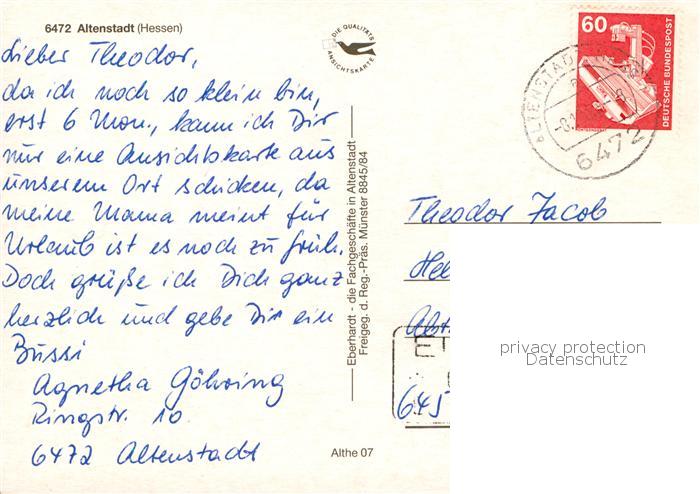 6472 Altenstadt (Hessen)
DIE QUALITÄTS
ANSICHTSKARTE
Lieber Theodor,
da ich noch so klein bin,
erst 6 Mon., kann ich Dir
nur eine Ansichtskarte aus
unserem Ort schicken, da
meine Mama meint für
Urlaub ist es noch zu früh.
Doch grüße ich Dich ganz
herzlich und gebe Dir ein
Bussi
Agnetha Göhring
Ringstr. 10
6472 Altenstadt
Eberhardt - die Fachgeschäfte in Altenstadt
Freigeg. d. Reg.-Präs. Münster 8845/84
Althe 07
60
DEUTSCHE BUNDESPOST
ALTENSTADT
6472
Theodor Jacob
Hel
645
privacy protection
Datenschutz